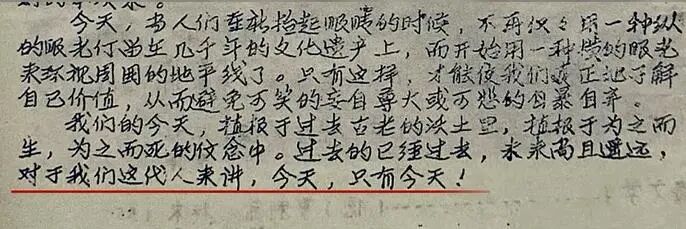 今天，当人们重新抬起眼睛的时候，不再仅仅用一种纵
的眼光停留在几千年的文化遗产上，而开始用一种横的眼光
来环视周围的地平线了。只有这样，才能使我们真正地了解
自己价值，从而避免可笑的妄自尊大或可悲的自暴自弃。
我们的今天，植根于过去古老的沃土里，植根于为之而
生，为之而死的信念中。过去的已经过去，未来尚且遥远，
对于我们这代人来讲，今天，只有今天！